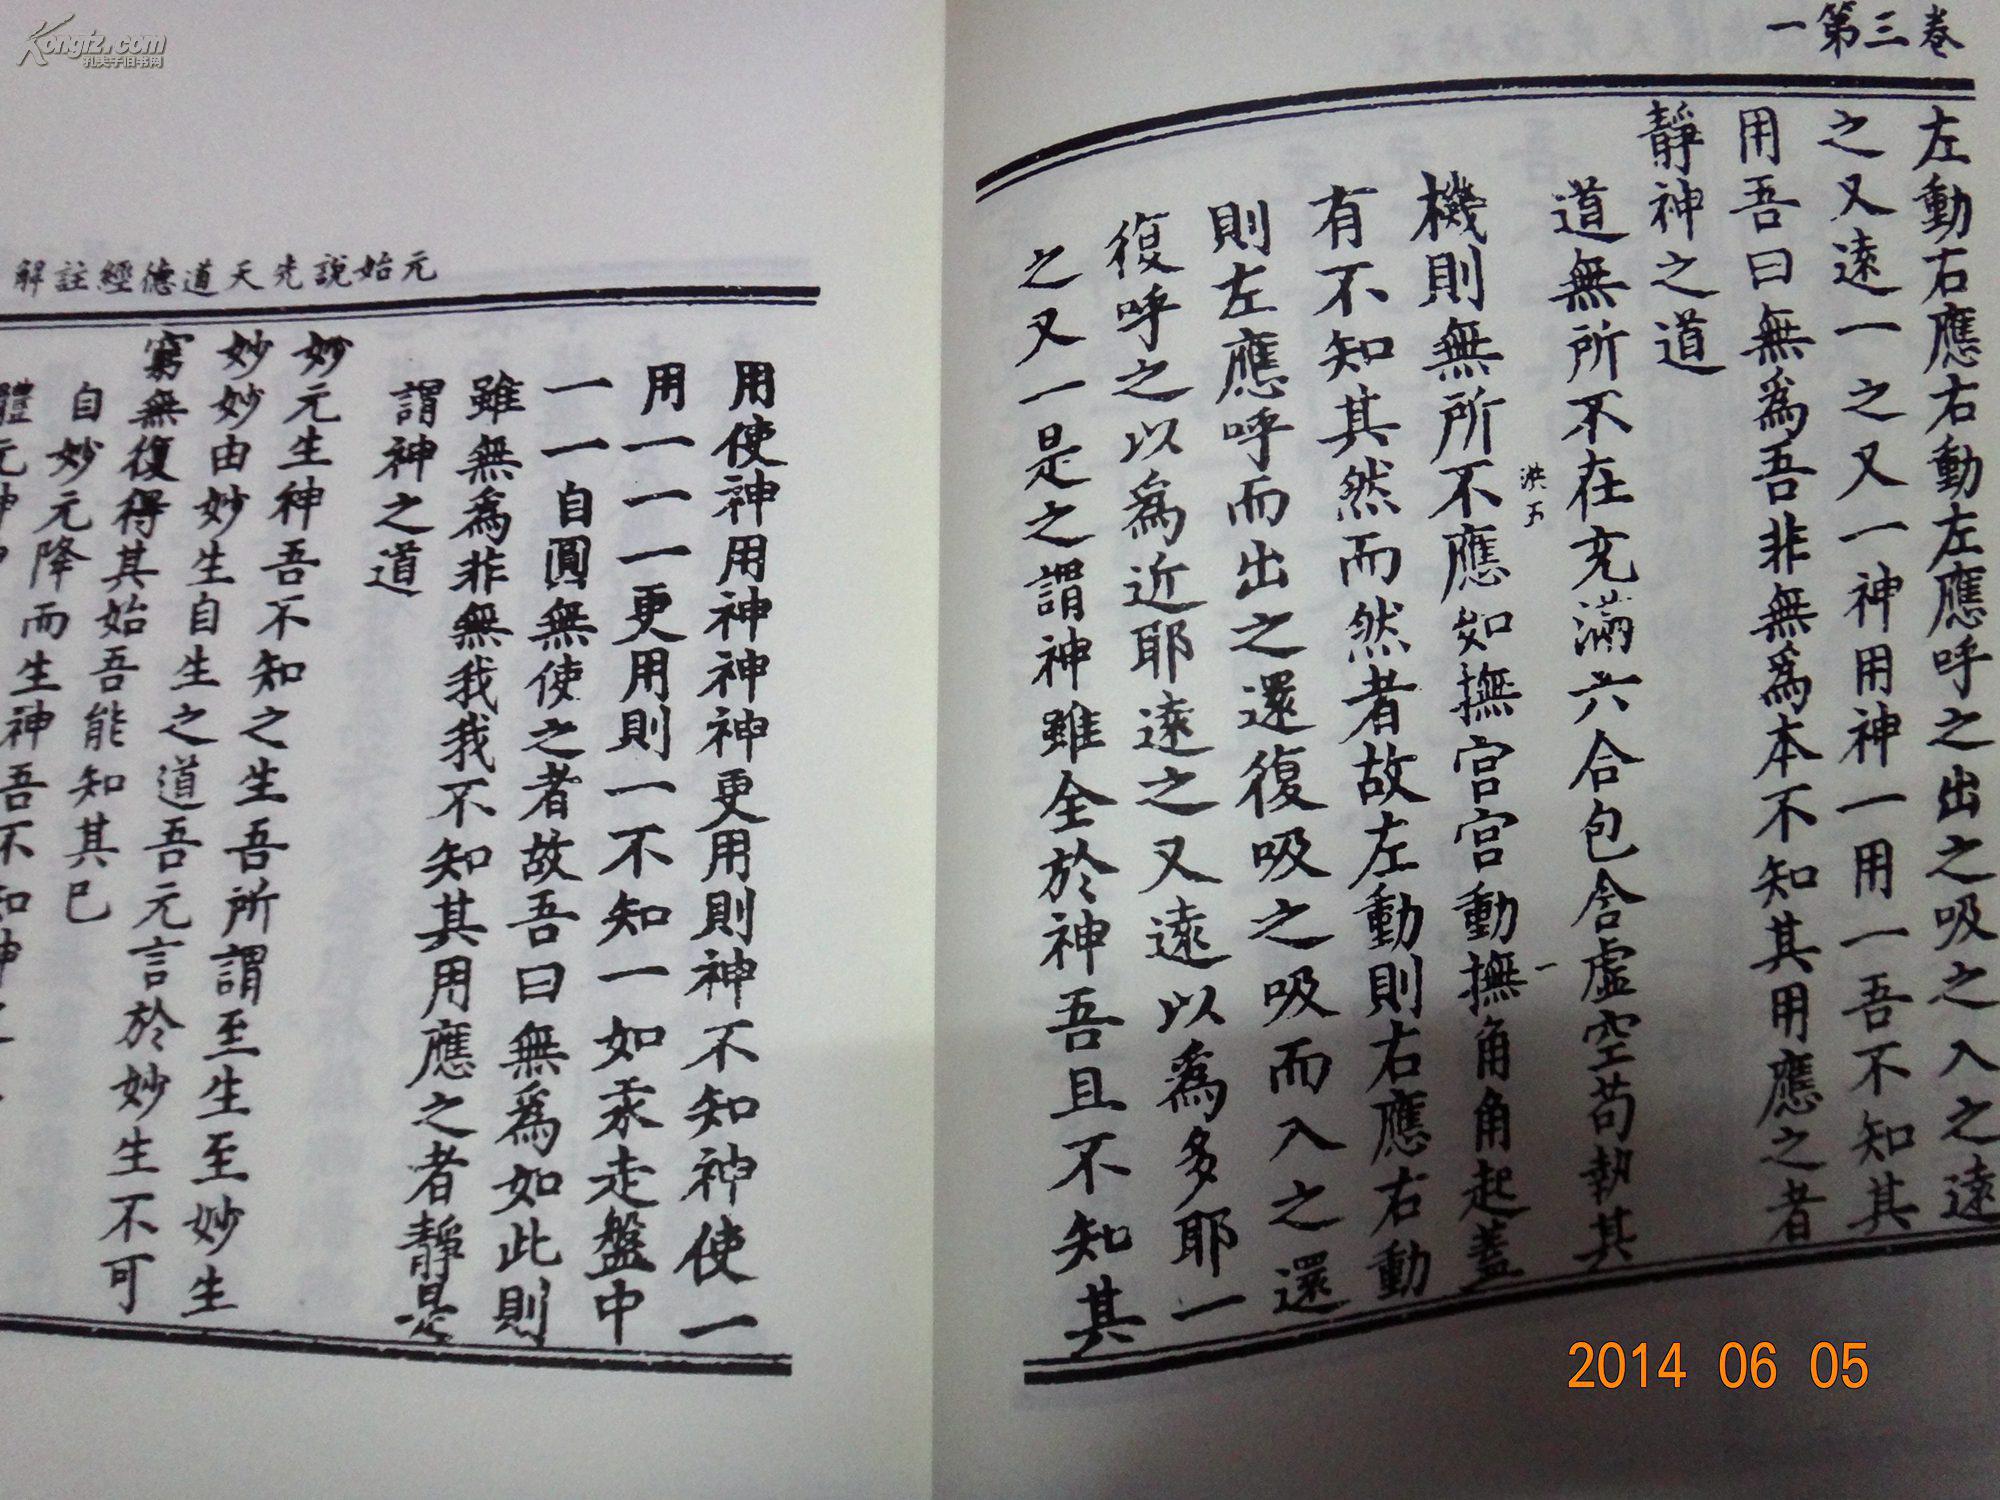 一第三卷
左動右應右動左應呼之出之吸之入之遠
之又遠一之又一神用神一用一吾不知其
用吾曰無為吾非無為本不知其用應之者
靜神之道
道無所不在充滿六合包含虛空苟執其
機則無所不應如撫宮宮動撫角角起蓋
有不知其然而然者故左動則右應右動
則左應呼而出之還復吸之吸而入之還
復呼之以為近耶遠之又遠以為多耶一
之又一是之謂神雖全於神吾且不知其
元始說先天道德經註解
用使神用神神神更用則神不知神使一
用一一一更用則一不知一如汞走盤中
一一自圓無使之者故吾曰無為如此則
雖無為非無我我不知其用應之者靜是
謂神之道
妙元生神吾不知之生吾所謂至生至妙生
妙妙由妙生自生之道吾元言於妙生不可
窮無復得其始吾能知其已
自妙元降而生神吾不知神
Kongfz.com
孔夫子旧书网
2014 06 05